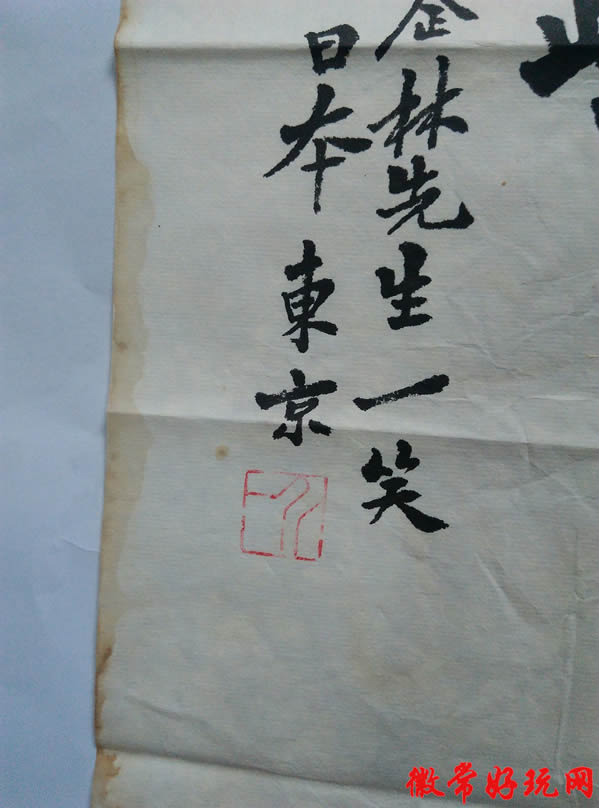 林先生一笑
日本東京
徽常好玩网